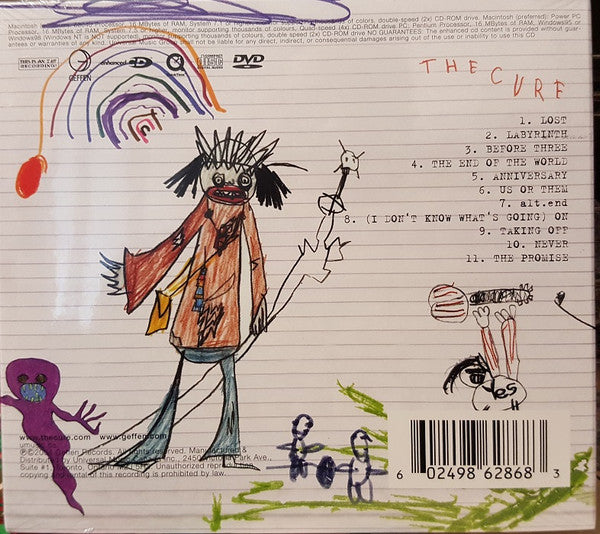 Macintosh Processor, 16 MBytes of RAM, System 7.1 or of colours, double-speed (2x) CD-ROM drive. Macintosh (preferred): Power PC
Processor, 16 MBytes of RAM, System 7.5 or higher, monitor supporting thousands of colours, Quad speed (4x) CD-ROM drive PC: Pentium Processor, 16 MBytes, Windows95 or
Windows98 (Windows NT is NOT supported), supporting thousands of colours, double speed (2x) CD-ROM drive NO GUARANTEES: The enhanced cd content is provided without guar-
antees or warranties of any kind. Universal Music Group will not be liable for any direct, indirect, or consequential damages arising out of the use or inability to use this CD
GEFFEN
enhanced
DVD
THE CURE
1. LOST
2. LABYRINTH
3. BEFORE THREE
4. THE END OF THE WORLD
5. ANNIVERSARY
6. US OR THEM
7. alt.end
8. (I DON'T KNOW WHAT'S GOING) ON
9. TAKING OFF
10. NEVER
11. THE PROMISE
yes
www.thecure.com www.geffen.com
Geffen Records. All rights reserved. Manufactured &
Distributed by Universal Music Inc., Park Ave.,
Suite #1, Toronto, Ontario Unauthorized
copying and rental of this recording is prohibited by law.
6 02498 62868 3